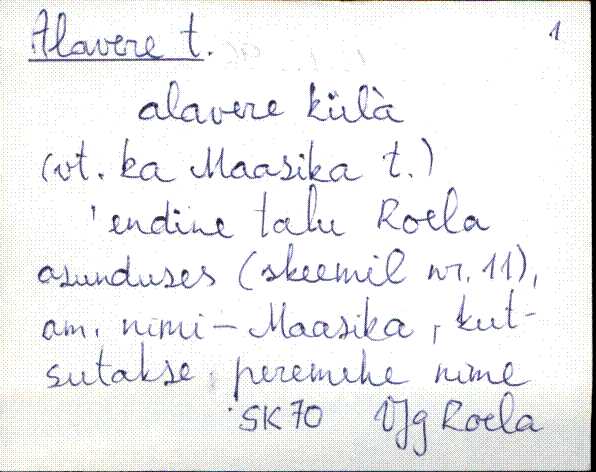 Alavere t. 1
alavere külà
(vt. ka Maasika t.)
'endine talu Roela
asunduses (skeemil nr. 11),
am. nimi – Maasika, kut-
sutakse peremehe nime
SK 70 VJg Roela